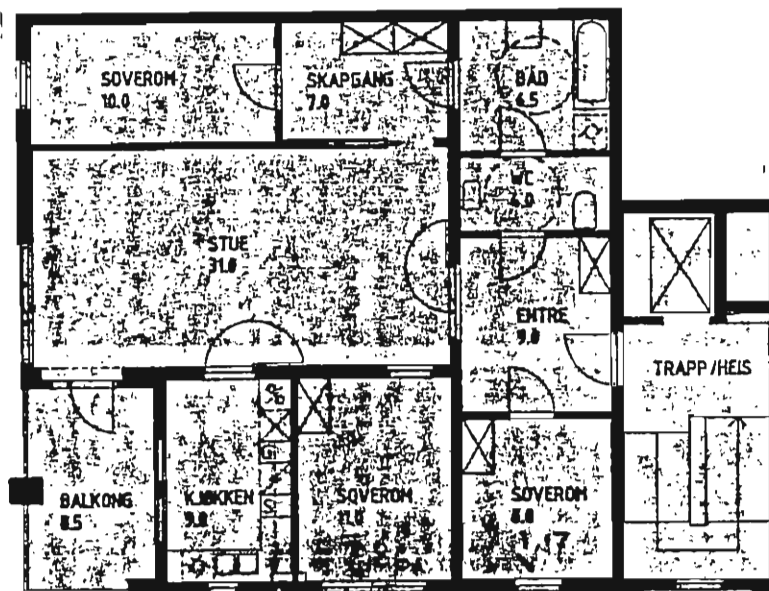 SOVEROM
10.0
SKAPGANG
7.0
BAD
6.5
WC
4.0
STUE
31.0
ENTRE
9.0
TRAPP/HEIS
BALKONG
8.5
KJØKKEN
9.0
SOVEROM
11.0
SOVEROM
8.0